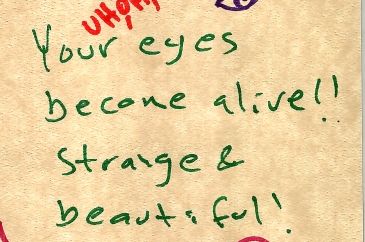 Your eyes
become alive!!
Strange &
beautiful!